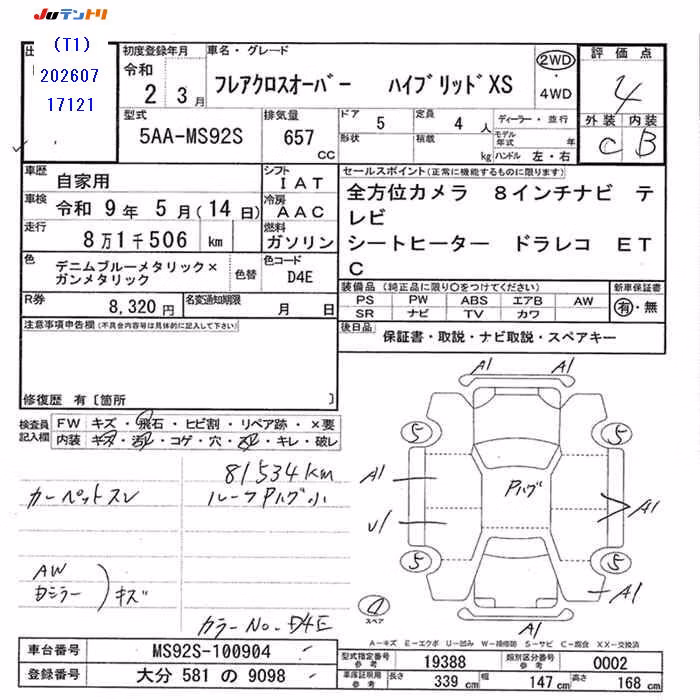 JUテントリ
(T1)
202607
17121
初度登録年月
令和
2 3月
車名・グレード
フレアクロスオーバー ハイブリッドXS
2WD
・
4WD
評価点
4
外装 内装
C B
型式
5AA-MS92S
排気量
657
CC
ドア
5
形状
定員
4 人
積載
kg
ディーラー・並行
モデル年式 年
ハンドル 左・右
車歴
自家用
シフト
IAT
車検
令和 9年 5月(14日)
冷房
AAC
走行
8万1千506 km
燃料
ガソリン
セールスポイント(正常に機能するものに限ります)
全方位カメラ 8インチナビ テ
レビ
シートヒーター ドラレコ ET
C
色
デニムブルーメタリック×
ガンメタリック
色替
色コード
D4E
R券
8,320円
名変通知期限
月 日
装備品(純正品に限り○をつけてください)
PS PW ABS エアB AW
SR ナビ TV カワ
新車保証書
有・無
後日品
保証書・取説・ナビ取説・スペアキー
注意事項申告欄(不具合内容等は具体的に記入して下さい)
修復歴 有〔箇所 〕
検査員
記入欄
FW キズ・飛石・ヒビ割・リペア跡・×要
内装 キズ・汚れ・コゲ・穴・スレ・キレ・破レ
81534km
カーペットスレ
ルーフPハグ小
AW
カミラー
キズ
カラーNo.D4E
A1 A1
5 5
A1
Pハグ
A1
U1
5 5
A1
A1
スペア
A-キズ E-エクボ U-凹み W-補修跡 S-サビ C-腐食 XX-交換済
車台番号
MS92S-100904
登録番号
大分 581 の 9098
型式指定番号
参考
19388
類別区分番号
参考
0002
車庫証明用
参考
長さ 339 cm 幅 147 cm 高さ 168 cm